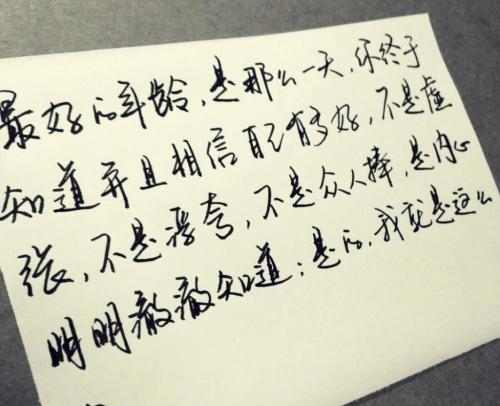 最好的年龄,是那么一天,你终于
知道并且相信自己有多好,不是虚
张,不是浮夸,不是众人捧,是内心
明明澈澈知道:是的,我就是这么